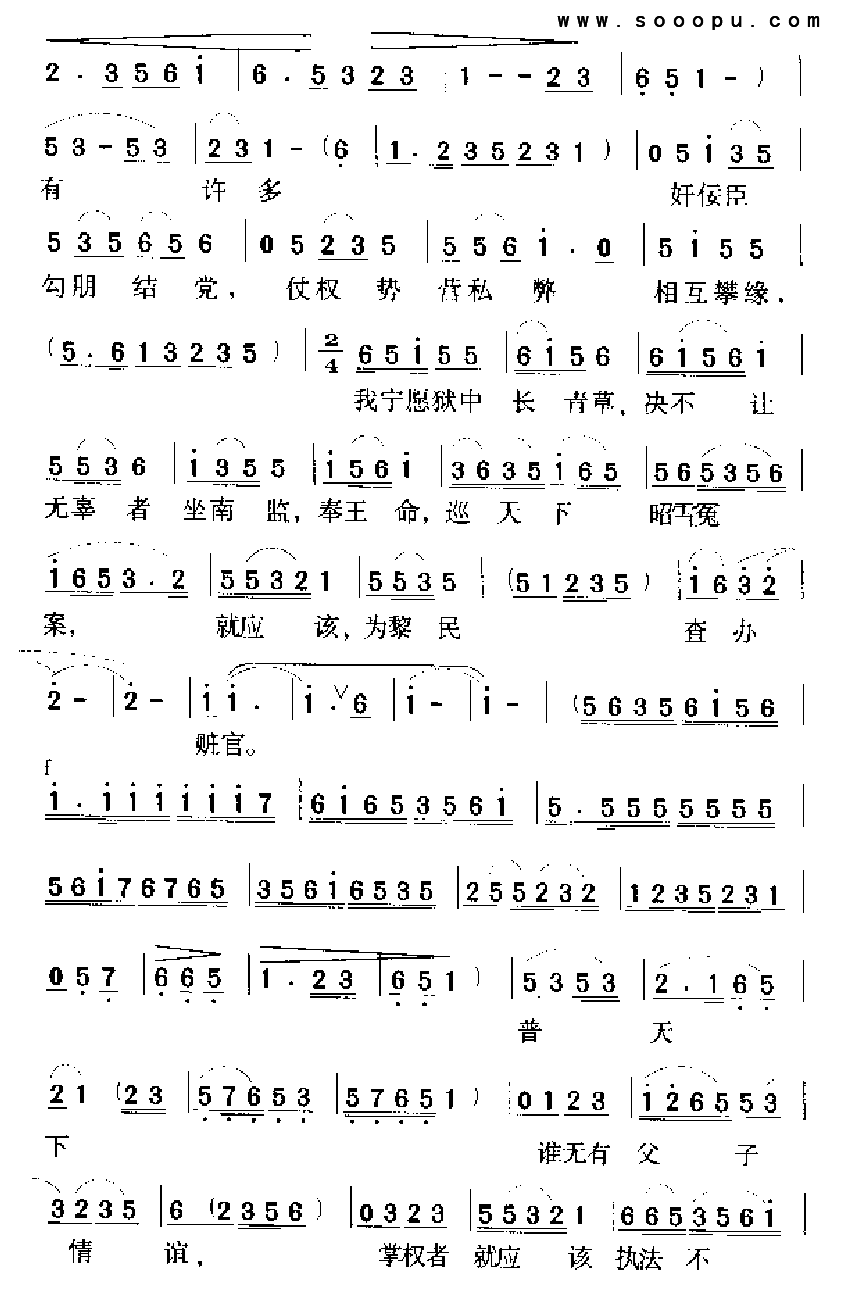 www.sooopu.com
2 · 3 5 6 i | 6 · 5 3 2 3 | 1 - - 2 3 | 6 5 1 - ) |
5 3 - 5 3 | 2 3 1 - ( 6 | 1 · 2 3 5 2 3 1 ) | 0 5 i 3 5
有 许 多 奸佞臣
5 3 5 6 5 6 | 0 5 2 3 5 | 5 5 6 i · 0 | 5 i 5 5 |
勾朋 结 党，仗权 势 营私 弊 相互攀缘，
( 5 · 6 1 3 2 3 5 ) | 2/4 6 5 i 5 5 | 6 i 5 6 | 6 i 5 6 i |
我宁愿狱中 长 青草，决不 让
5 5 3 6 | i 3 5 5 | i 5 6 i | 3 6 3 5 i 6 5 | 5 6 5 3 5 6
无辜 者 坐南 监，奉王 命，巡 天 下 昭雪冤
i 6 5 3 · 2 | 5 5 3 2 1 | 5 5 3 5 | ( 5 1 2 3 5 ) | i 6 3 2 |
案， 就应 该，为黎 民 查办
2 - | 2 - | i i · | i · ∨ 6 | i - | i - | ( 5 6 3 5 6 i 5 6 |
赃官。
f
i · i i i i i i 7 | 6 i 6 5 3 5 6 i | 5 · 5 5 5 5 5 5 5 |
5 6 i 7 6 7 6 5 | 3 5 6 i 6 5 3 5 | 2 5 5 2 3 2 | 1 2 3 5 2 3 1 |
0 5 7 | 6 6 5 | 1 · 2 3 | 6 5 1 ) | 5 3 5 3 | 2 · 1 6 5 |
普 天
2 1 ( 2 3 | 5 7 6 5 3 | 5 7 6 5 1 ) | 0 1 2 3 | i 2 6 5 5 3 |
下 谁无有 父 子
3 2 3 5 | 6 ( 2 3 5 6 ) | 0 3 2 3 | 5 5 3 2 1 | 6 6 5 3 5 6 i |
情 谊， 掌权者 就应 该 执法 不